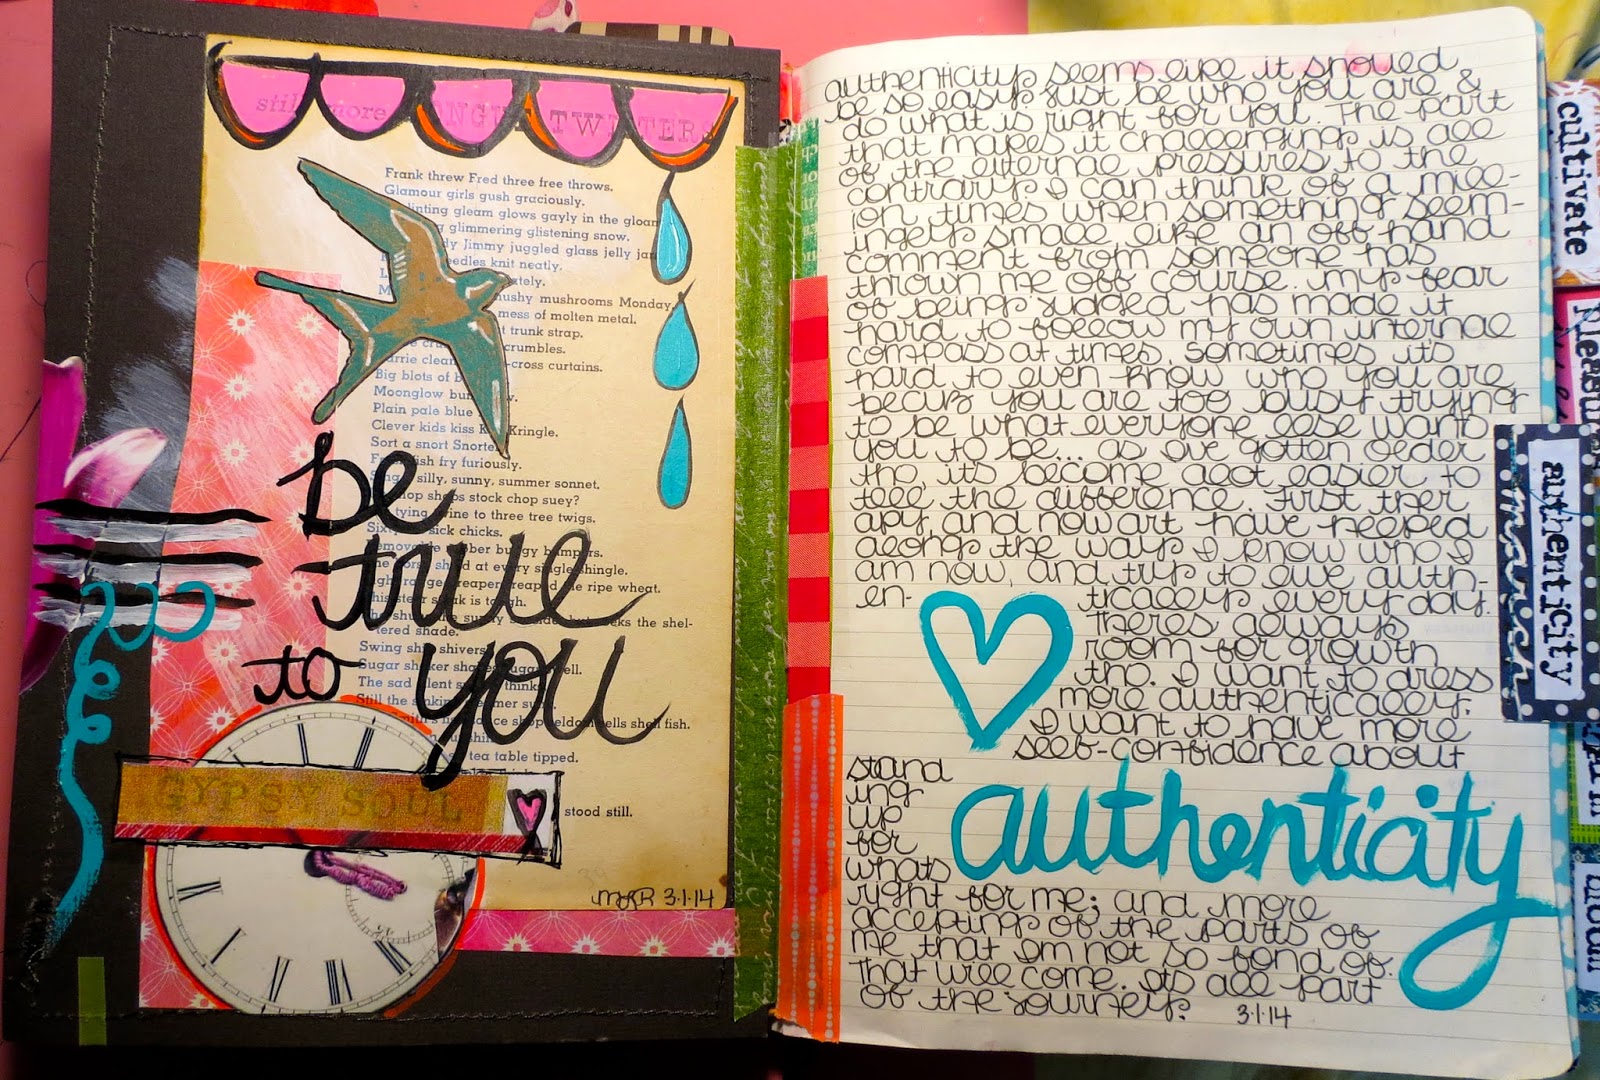 still more TONGUE TWISTERS
Frank threw Fred three free throws.
Glamour girls gush graciously.
glinting gleam glows gayly in the gloam
glimmering glistening snow.
Jimmy juggled glass jelly jars
needles knit neatly.
mushy mushrooms Monday
mess of molten metal.
trunk strap.
crumbles.
clean cross curtains.
Big blots of
Moonglow
Plain pale blue
Clever kids kiss Kringle.
Sort a snort
fish fry furiously.
silly, sunny, summer sonnet.
shops stock chop suey?
tying twine to three tree twigs.
sick chicks.
rubber buggy bumpers.
at every single shingle.
ripe wheat.
steak is tough.
the shel-
tered shade.
Swing ship shivers
Sugar shaker
The sad silent
Still the sinking
shop seldom sells shell fish.
tea table tipped.
stood still.
be
true
to you
GYPSY SOUL
3.1.14
authenticity seems like it should
be so easy just be who you are &
do what is right for you. The part
that makes it challenging is all
of the external pressures to the
contrary. I can think of a mill-
ion times when something seem-
ingly small like an off hand
comment from someone has
thrown me off course. my fear
of being judged has made it
hard to follow my own internal
compass at times. sometimes it's
hard to even know who you are
becuz you are too busy trying
to be what everyone else wants
you to be... as I've gotten older
tho, it's become alot easier to
tell the difference. First ther
apy and now art have helped
along the way. I know who I
am now, and try to live auth-
en- tically every day.
Theres always
room for growth
tho. I want to dress
more authentically;
I want to have more
self-confidence about
stand
ing
up
for
whats
authenticity
right for me; and more
accepting of the parts of
me that Im not so fond of.
That will come. Its all part
of the journey? 3.1.14
cultivate
authenticity
march